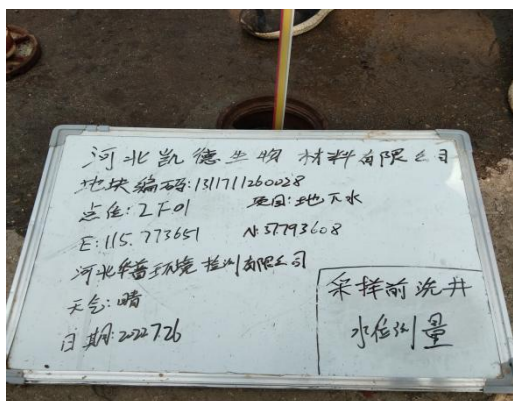 河北凯德生物材料有限公司
地块编码:1311711260028
点位:2F01 项目:地下水
E:115.773651 N:37.793608
河北华普环境检测有限公司
天气:晴
日期:2022.7.26
采样前洗井
水位测量